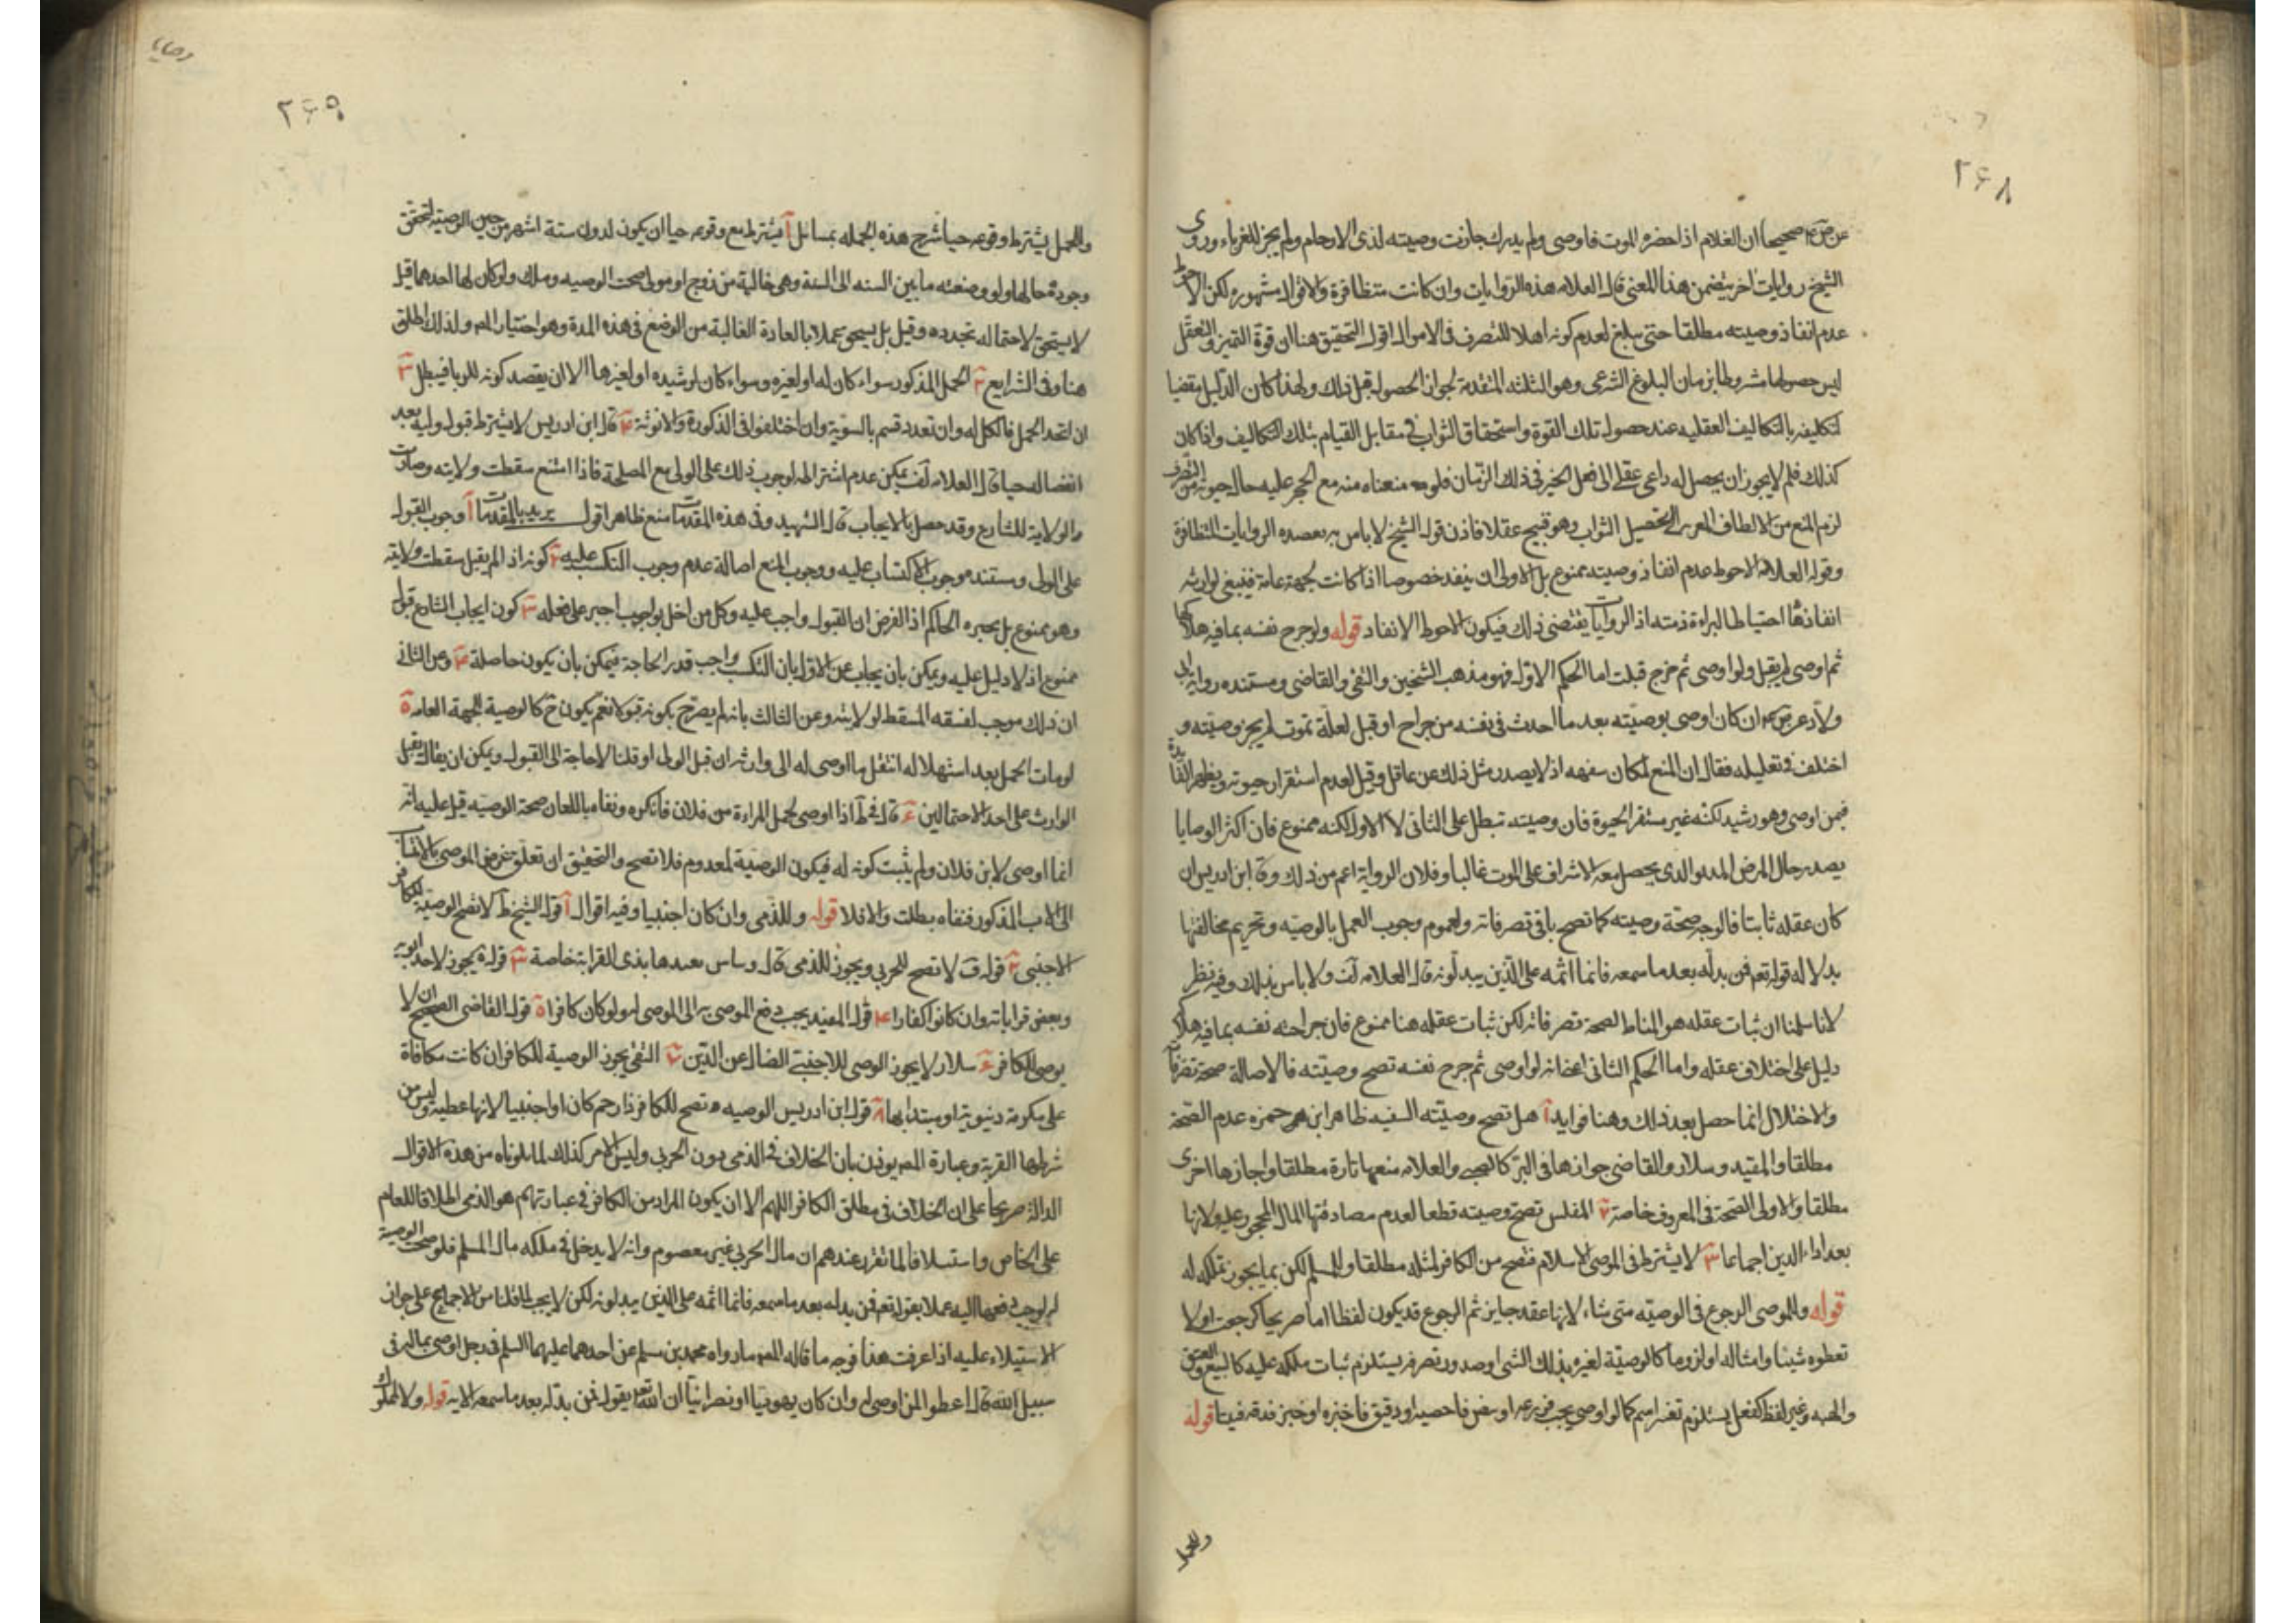 ٢٦٨
عن ص ع صحيحا ان الغلام اذا حضره الموت فاوصى ولم يدرك جازت وصيته لذى الارحام ولم يجز للغرباء وروى
الشيخ روايات اخر يتضمن هذا المعنى قال العلامه هذه الروايات وان كانت متظافرة والاقوال مشهوره لكن الاحوط
عدم انفاذ وصيته مطلقا حتى يبلغ لعدم كونه اهلا للتصرف فى الاموال اقول التحقيق هنا ان قوة التميز والتعقل
ليس حصولها مشروطا بزمان البلوغ الشرعى وهو الثلثه المتقدمة لجواز الحصول قبل ذلك ولهذا كان الدليل مقضيا
لتكليفه بالتكاليف العقليه عند حصول تلك القوة واستحقاق الثواب فى مقابل القيام بتلك التكاليف واذا كان
كذلك فلم لا يجوز ان يحصل له داعى عقلى الى فعل الخير فى ذلك الزمان فلو منعناه منه مع الحجر عليه حال حيوته من التصرف
لزم المنع من الالطاف لتحصيل الثواب وهو قبيح عقلا فاذن قول الشيخ لا باس به يعضده الروايات المتظافرة
وقول العلامه الاحوط عدم انفاذ وصيته ممنوع بل الاولى ان ينفذ خصوصا اذا كانت لجهة عامة فينبغى لوارثه
انفاذها احتياطا لبراءة ذمته اذ الروايات يقتضى ذلك فيكون الاحوط الانفاد قوله ولو جرح نفسه بما فيه هلاكها
ثم اوصى لم يقبل ولو اوصى ثم جرح قبلت اما الحكم الاول فهو مذهب الشيخين والتقى والقاضى ومستنده رواية ابى
ولاد عن ص ع ان كان اوصى بوصيته بعد ما احدث فى نفسه من جراح او قبل لعلة تموت لم يجز وصيته و
اختلف فى تعليله فقال ان المنع لمكان سفهه اذ لا يصدر مثل ذلك عن عاقل وقيل لعدم استقرار حيوته ويظهر الفايدة
فيمن اوصى وهو رشيد لكنه غير مستقر الحيوة فان وصيته تبطل على الثانى لا الاول لكنه ممنوع فان اكثر الوصايا
يصدر حال المرض الذى يحصل معه الاشراف على الموت غالبا وفلان الرواية اعم من ذلك وقال ابن ادريس ان
كان عقله ثابتا فالوجه صحة وصيته كما تصح باقى تصرفاته ولعموم وجوب العمل بالوصيه وتحريم مخالفتها
بدلاله قوله تعه فمن بدله بعد ما سمعه فانما اثمه على الذين يبدلونه قال العلامه ولا باس بذلك وفيه نظر
لانا سلمنا ان ثبات عقله هو المناط لصحة تصرفاته لكن ثبات عقله هنا ممنوع فان جراحته نفسه بما فيه هلاكها
دليل على اختلاف عقله واما الحكم الثانى اعنى انه لو اوصى ثم جرح نفسه تصح وصيته فالاصالة صحة تصرفاته
والاختلال انما حصل بعد ذلك وهنا فوايد آ هل تصح وصيته السفيه ظاهر ابن حمزه عدم الصحة
مطلقا والمفيد وسلار والقاضى جوازها فى البر والعلامه منعها تارة مطلقا واجازها اخرى
مطلقا والاولى الصحة فى المعروف خاصة ٢ المفلس تصح وصيته قطعا لعدم مصادفتها المال المحجور عليه ولانها
بعد اداء الدين اجماعا ٣ لا يشترط فى الموصى الاسلام فتصح من الكافر لمثله مطلقا وللمسلم لكن بما يجوز تملكه له
قوله وللموصى الرجوع فى الوصيته متى شاء لانها عقد جايز ثم الرجوع قد يكون لفظا اما صريحا كرجعت او لا
تعطوه شيئا وامثاله او لزوما كالوصيّة لغيره بذلك الشى او صدور تصرف يستلزم ثبات ملكه عليه كالبيع والعتق
والهبه وغير لفظ كفعل يستلزم تغير اسم كما لو اوصى بحب فزرعه او دقيق فاخبزه او خبز فدقه فيتا قوله
وللحمل
وصايا
٢٦٩
وللحمل يشترط وقوعه حيا شرح هذه الجمله بمسائل آ يشترط مع وقوعه حيا ان يكون لدون ستة اشهر من حين الوصيه لتحقق
وجوده حالها ولو وضعته ما بين السته الى السنة وهى خالية من زوج او مولى صحت الوصيه وملك ولو كان لها احدهما قيل
لا يستحق لاحتماله تجدده وقيل بل يستحق عملا بالعادة الغالبة من الوضع فى هذه المدة وهو اختيار المص ولذلك اطلق
هنا وفى الشرايع ٢ الحمل المذكور سواء كان له او لغيره وسواء كان لرشيده او لغيرها الا ان يقصد كونه للربا فيبطل ٣
ان اتحد الحمل فالكل له وان تعدد قسم بالسوية وان اختلفوا فى الذكورة والانوثة ٤ قال ابن ادريس لا يشترط قبول وليه بعد
انفصاله حيا قال العلامه لف يمكن عدم اشتراطه لوجوب ذلك على الولى مع المصلحة فاذا امتنع سقطت ولايته وصارت
والولاية للشارع وقد حصل بالايجاب قال الشهيد وفى هذه المقدمات منع ظاهر اقول يريد بالمقدمات آ وجوب القبول
على الولى ومستنده وجوب الاكتساب عليه ووجوب المنع اصالة عدم وجوب التكسب عليه ٢ كونه اذا لم يقبل سقطت ولايته
وهو ممنوع بل يجبره الحاكم اذ الفرض ان القبول واجب عليه وكل من اخل بواجب اجبر على فعله ٣ كون ايجاب الشارع قبولا
ممنوع اذ لا دليل عليه ويمكن بان يجاب عن الاول بان التكسب واجب قدر الحاجة فيمكن بان يكون حاصلة وعن الثانى
ان ذلك موجب لفسقه المسقط لولايته وعن الثالث بانه لم يصرح بكونه قبولا نعم يكون ح كالوصية للجهة العامة ٥
لو مات الحمل بعد استهلاله انتقل ما اوصى له الى وارثه ان قبل الولى او قلنا لا حاجة الى القبول ويمكن ان يقال يقبل
الوارث على احد الاحتمالين ٦ قال فى ط اذا اوصى لحمل المراءة من فلان فانكره ونفاه باللعان صحة الوصيه قيل عليه انه
انما اوصى لابن فلان ولم يثبت كونه له فيكون الوصية لمعدوم فلا تصح والتحقيق ان تعلق غرض الموصى بالانتساب
الى الاب المذكور فنفاه بطلت والا فلا قوله وللذمى وان كان اجنبيا وفيه اقوال آ قول الشيخ ط لا تصح الوصيّة للكافر
الاجنبى ٢ قوله ف لا تصح للحربى ويجوز للذمى قال وساس بعدها بذى القرابة خاصة ٣ قوله يجوز لاحد ابويه
وبعض قراباته وان كانوا كفارا ٤ قول المفيد يجب دفع الموصى به الى الموصى له ولو كان كافرا ٥ قول القاضى الصحيح ان لا
يوصى للكافر ٦ سلار لا يجوز الوصى للاجنبى الضال عن الدين ٧ التقى يجوز الوصية للكافر ان كانت مكافاة
على مكرمة دنيوية او مبتدا بها ٨ قول ابن ادريس الوصيه تصح للكافر ذا رحم كان او اجنبيا لانها عطية وليس من
شرطها القربة وعبارة المص يوذن بان الخلاف فى الذمى دون الحربى وليس الامر كذلك لما تلوناه من هذه الاقوال
الدالة صريحا على ان الخلاف فى مطلق الكافر اللهم الا ان يكون المراد من الكافر فى عبارتهم هو الذمى اطلاقا للعام
على الخاص واستسلافا لما تقرر عندهم ان مال الحربى غير معصوم وانه لا يدخل فى ملكه مال المسلم فلو صحت الوصية
له لوجب دفعها اليه عملا بقوله تعه فمن بدله بعد ما سمعه فانما اثمه على الذين يبدلونه لكن لا يجب لما قلنا من الاجماع على جواز
الاستيلاء عليه اذا عرفت هذا فوجه ما قاله المص ما رواه محمد بن مسلم عن احدهما عليهما السلم فى رجل اوصى بماله فى
سبيل الله قال اعطوا لمن اوصى له وان كان يهوديا او نصرانيا ان الله تعه يقول فمن بدله بعد ما سمعه الايه قوله ولا لمملوك